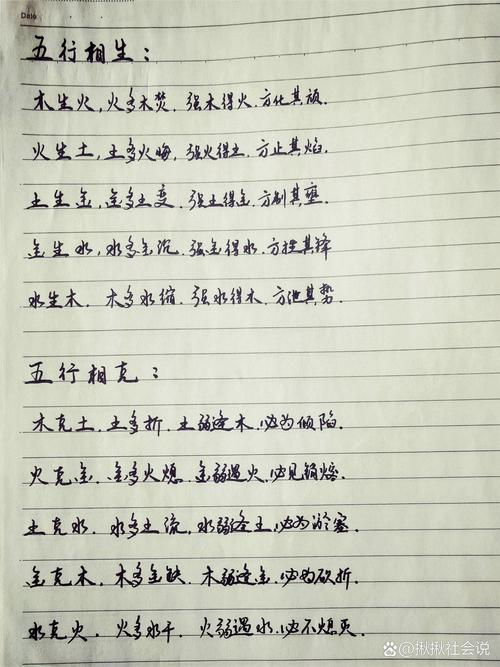 Date
五行相生：
木生火，火多木焚．强木得火．方化其顽．
火生土，土多火晦，强火得土．方止其焰．
土生金，金多土变．强土得金．方制其壅．
金生水，水多金沉．强金得水．方挫其锋
水生木．木多水缩．强水得木．方泄其势．
五行相克：
木克土，土多折．土弱逢木．必为倾陷．
火克金．金多火熄．金弱遇火．必见销熔．
土克水．水多土流，水弱逢土．必为淤塞．
金克木，木多金缺．木弱逢金．必为砍折．
水克火．火多水干．火弱遇水．必不熄灭．
揪揪社会说